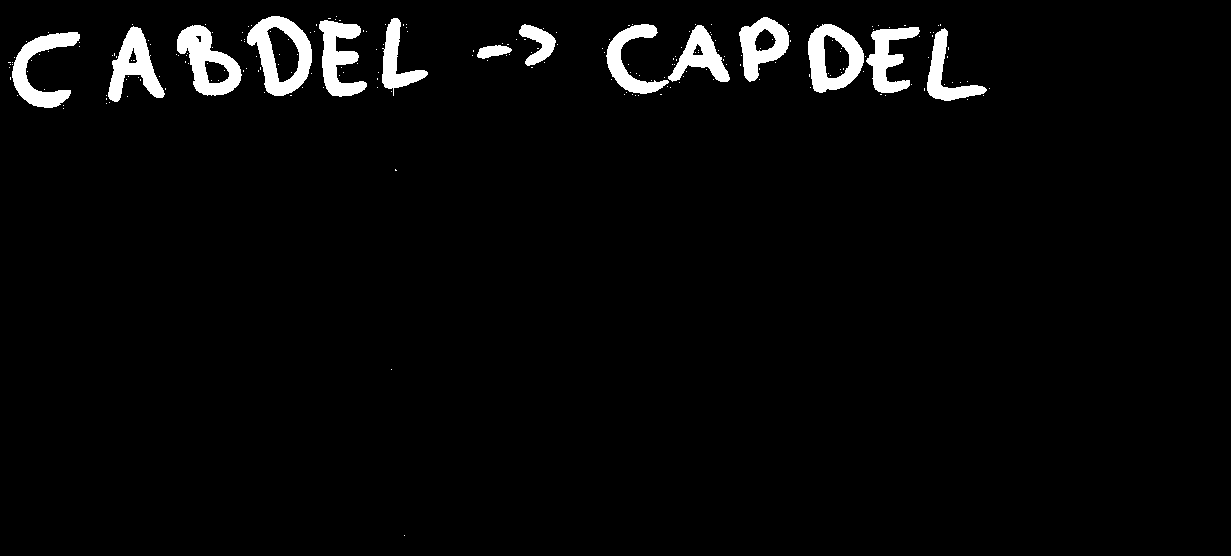 CABDEL -> CAPDEL